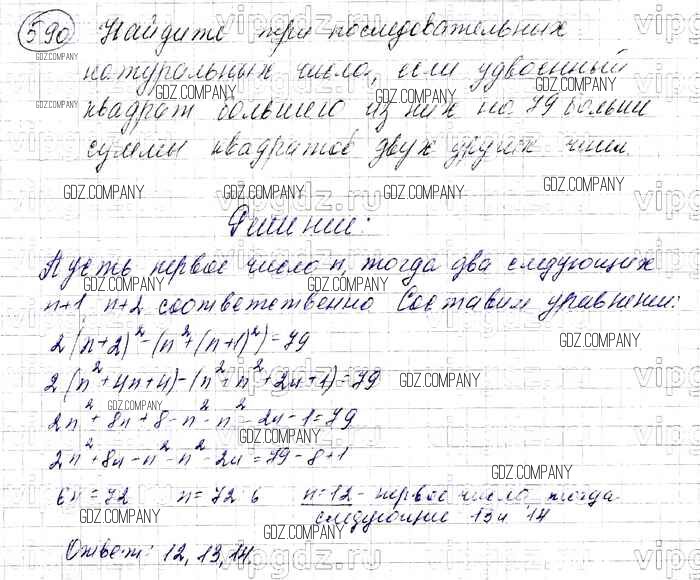 590 Найдите три последовательных
натуральных числа, если удвоенный
квадрат большего из них на 79 больше
суммы квадратов двух других чисел.
Решение:
Пусть первое число n, тогда два следующих
n+1, n+2 соответственно. Составим уравнение:
2(n+2)²-(n²+(n+1)²)=79
2(n²+4n+4)-(n²+n²+2n+1)=79
2n²+8n+8-n²-n²-2n-1=79
2n²+8n-n²-n²-2n=79-8+1
6n=72 n=72:6 n=12 - первое число, тогда
следующие 13 и 14
Ответ: 12, 13, 14.
GDZ.COMPANY
vipgdz.ru